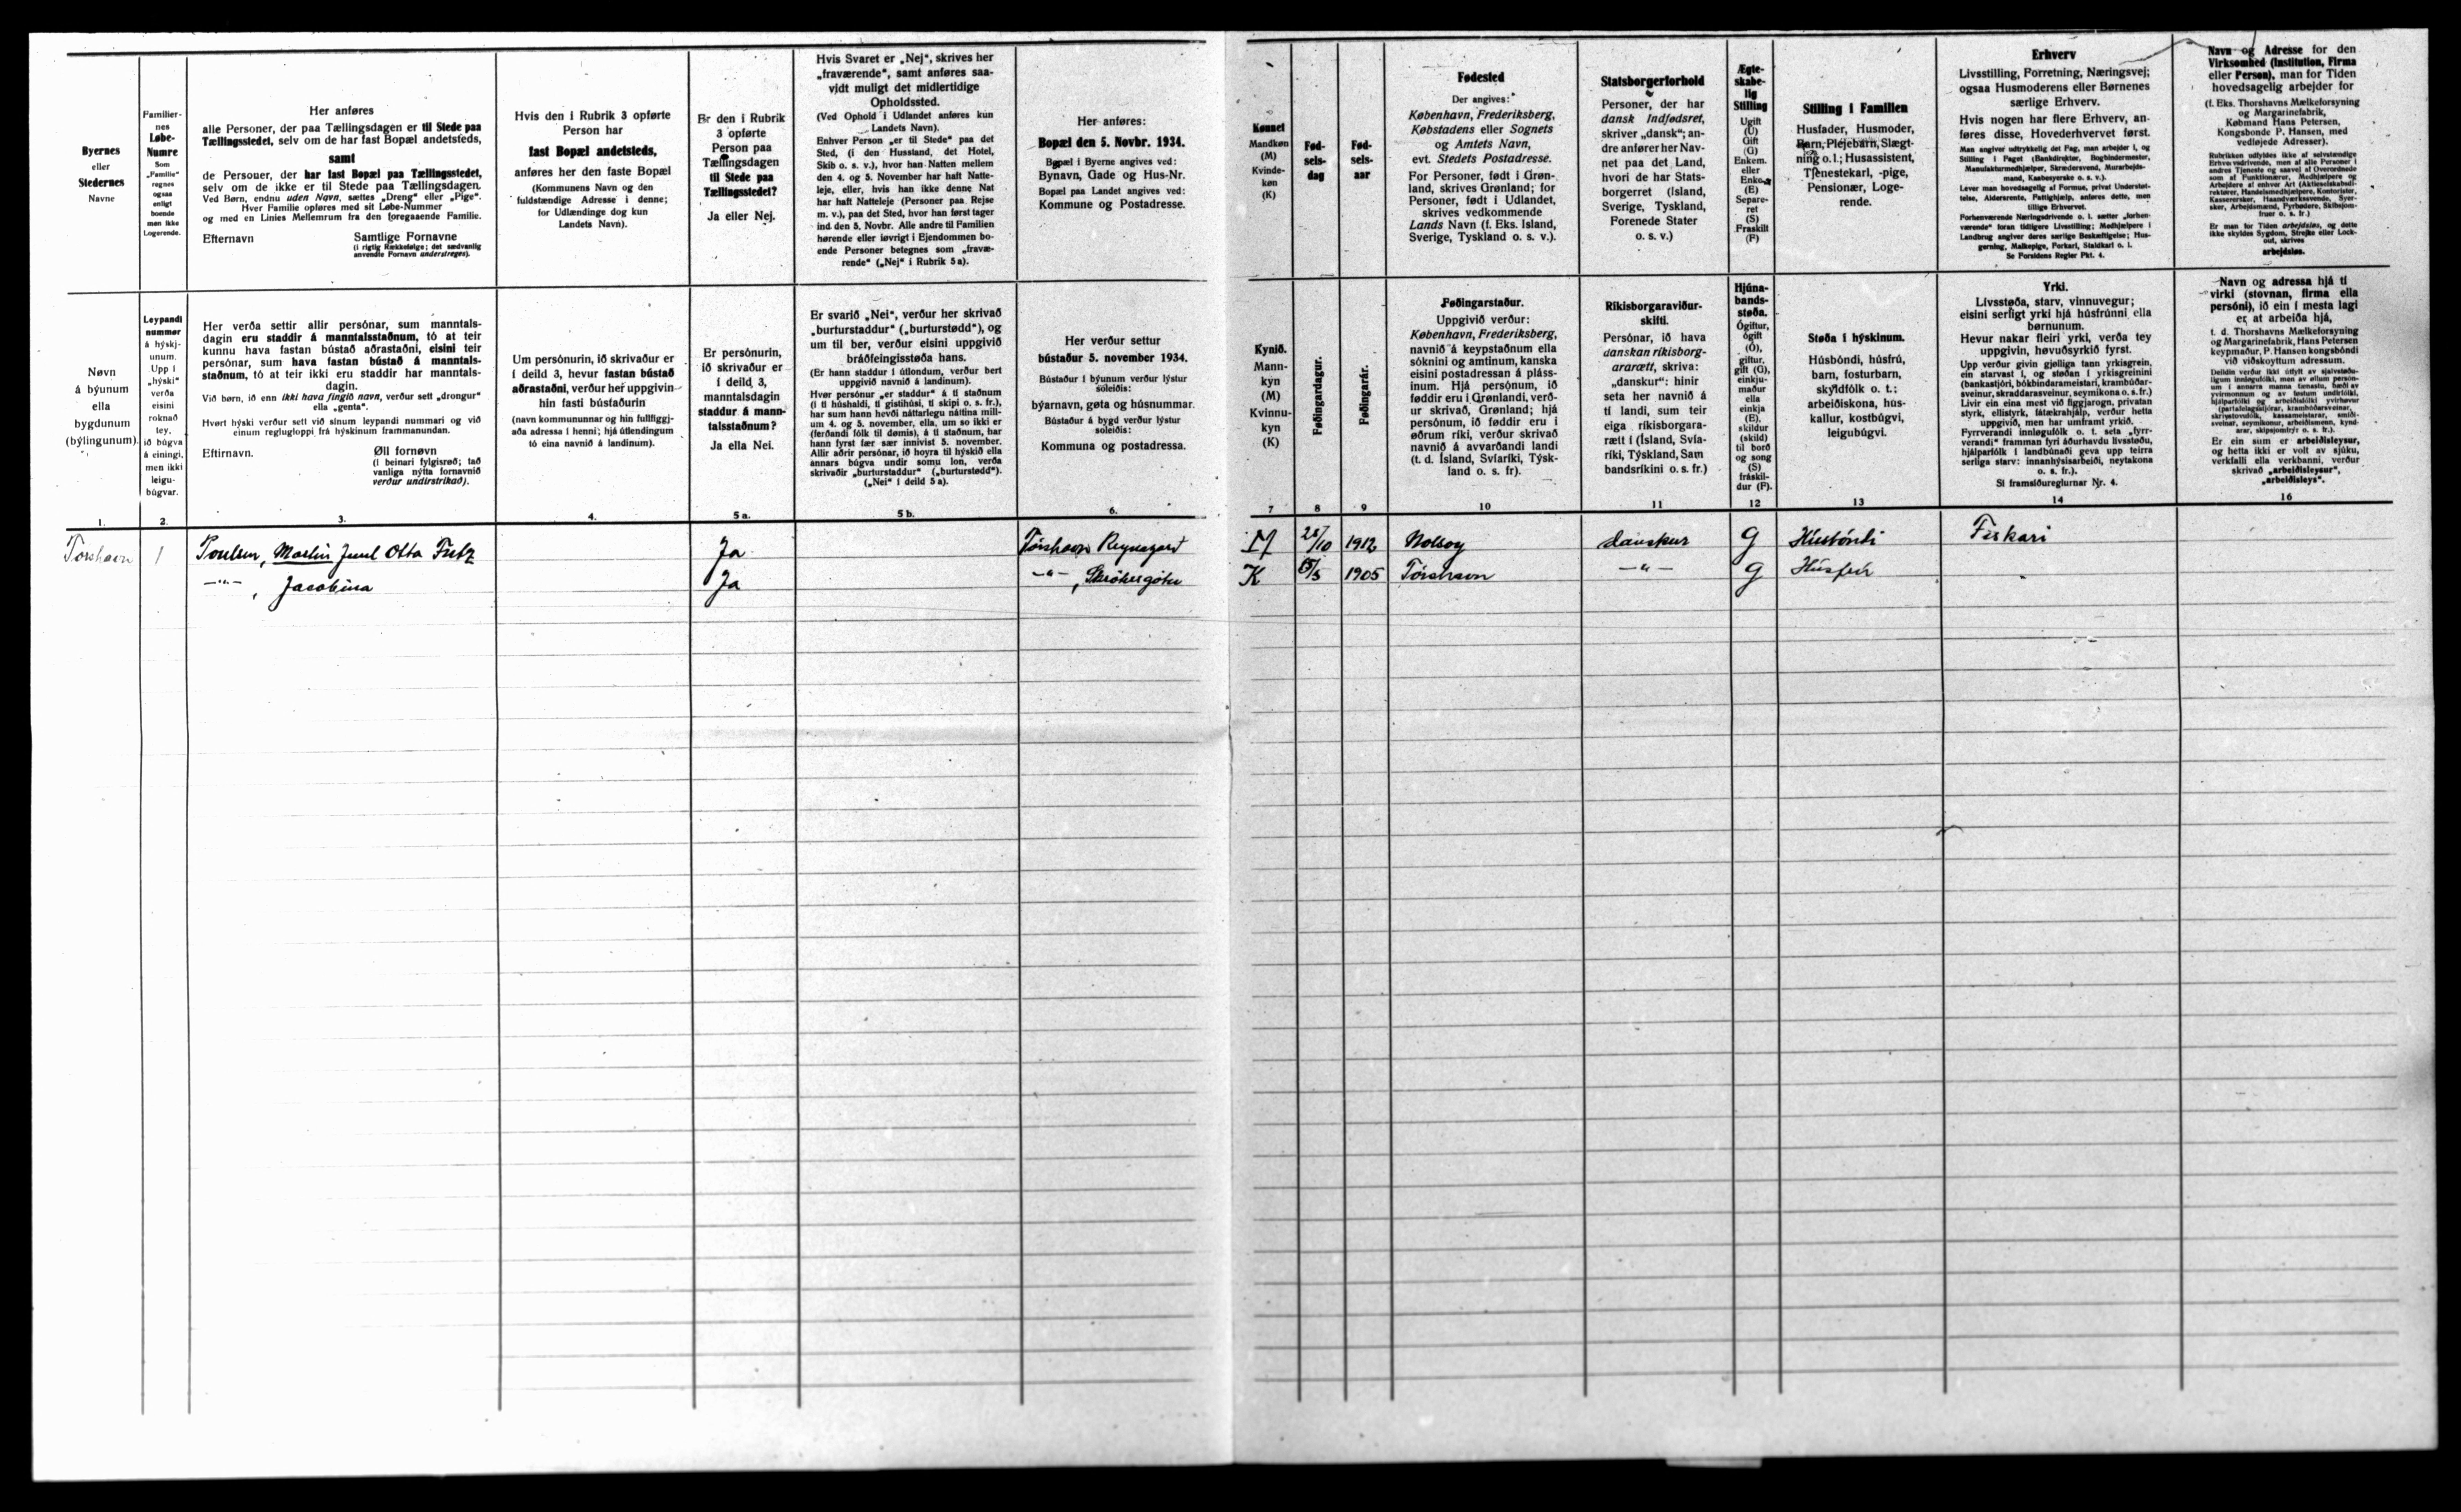 Byernes
eller
Stedernes
Navne
Familier-
nes
Løbe-
Numre
Som
„Familie“
regnes
ogsaa
enligt
boende
men ikke
Logerende.
Her anføres
alle Personer, der paa Tællingsdagen er til Stede paa
Tællingsstedet, selv om de har fast Bopæl andetsteds,
samt
de Personer, der har fast Bopæl paa Tællingsstedet,
selv om de ikke er til Stede paa Tællingsdagen.
Ved Børn, endnu uden Navn, sættes „Dreng“ eller „Pige“.
Hver Familie opføres med sit Løbe-Nummer
og med en Linies Mellemrum fra den foregaaende Familie.
Efternavn Samtlige Fornavne
(i rigtig Rækkefølge; det sædvanlig
anvendte Fornavn understreges).
Hvis den i Rubrik 3 opførte
Person har
fast Bopæl andetsteds,
anføres her den faste Bopæl
(Kommunens Navn og den
fuldstændige Adresse i denne;
for Udlændinge dog kun
Landets Navn).
Er den i Rubrik
3 opførte
Person paa
Tællingsdagen
til Stede paa
Tællingsstedet?
Ja eller Nej.
Hvis Svaret er „Nej“, skrives her
„fraværende“, samt anføres saa-
vidt muligt det midlertidige
Opholdssted.
(Ved Ophold i Udlandet anføres kun
Landets Navn).
Enhver Person „er til Stede“ paa det
Sted, (i den Husstand, det Hotel,
Skib o. s. v.), hvor han Natten mellem
den 4. og 5. November har haft Natte-
leje, eller, hvis han ikke denne Nat
har haft Natteleje (Personer paa Rejse
m. v.), paa det Sted, hvor han først tager
ind den 5. Novbr. Alle andre til Familien
hørende eller iøvrigt i Ejendommen bo-
ende Personer betegnes som „fravæ-
rende“ („Nej“ i Rubrik 5a).
Her anføres:
Bopæl den 5. Novbr. 1934.
Bopæl i Byerne angives ved:
Bynavn, Gade og Hus-Nr.
Bopæl paa Landet angives ved:
Kommune og Postadresse.
Kønnet
Mandkøn
(M)
Kvinde-
køn
(K)
Fød-
sels-
dag
Fød-
sels-
aar
Fødested
Der angives:
København, Frederiksberg,
Købstadens eller Sognets
og Amtets Navn,
evt. Stedets Postadresse.
For Personer, født i Grøn-
land, skrives Grønland; for
Personer, født i Udlandet,
skrives vedkommende
Lands Navn (f. Eks. Island,
Sverige, Tyskland o. s. v.).
Statsborgerforhold
Personer, der har
dansk Indfødsret,
skriver „dansk“; an-
dre anfører her Nav-
net paa det Land,
hvori de har Stats-
borgerret (Island,
Sverige, Tyskland,
Forenede Stater
o. s. v.)
Ægte-
skabe-
lig
Stilling
Ugift
(U)
Gift
(G)
Enkem.
eller
Enke
(E)
Separe-
ret
(S)
Fraskilt
(F)
Stilling i Familien
Husfader, Husmoder,
Barn, Plejebarn, Slægt-
ning o. l.; Husassistent,
Tjenestekarl, -pige,
Pensionær, Loge-
rende.
Erhverv
Livsstilling, Forretning, Næringsvej;
ogsaa Husmoderens eller Børnenes
særlige Erhverv.
Hvis nogen har flere Erhverv, an-
føres disse, Hovederhvervet først.
Man angiver udtrykkelig det Fag, man arbejder i, og
Stilling i Faget (Bankdirektør, Bogbindermester,
Manufakturmedhjælper, Skrædersvend, Murarbejds-
mand, Kaabesyerske o. s. v.).
Lever man hovedsagelig af Formue, privat Understøt-
telse, Aldersrente, Fattighjælp, anføres dette, men
tillige Erhvervet.
Forhenværende Næringsdrivende o. l. sætter „forhen-
værende“ foran tidligere Livsstilling; Medhjælpere i
Landbrug angiver deres særlige Beskæftigelse; Hus-
gerning, Malkepige, Forkarl, Staldkarl o. l.
Se Forsidens Regler Pkt. 4.
Navn og Adresse for den
Virksomhed (Institution, Firma
eller Person), man for Tiden
hovedsagelig arbejder for
(f. Eks. Thorshavns Mælkeforsyning
og Margarinefabrik,
Købmand Hans Petersen,
Kongsbonde P. Hansen, med
vedføjede Adresser).
Rubrikken udfyldes ikke af selvstændige
Erhvervsdrivende, men af alle Personer i
andres Tjeneste og saavel af Overordnede
som af Funktionærer, Medhjælpere og
Arbejdere af enhver Art (Aktieselskabsdi-
rektører, Handelsmedhjælpere, Kontorister,
Kassererskrer, Haandværkssvende, Syer-
sker, Arbejdsmænd, Fyrbødere, Skibsjom-
fruer o. s. fr.)
Er man for Tiden arbejdsløs, og dette
ikke skyldes Sygdom, Strejke eller Lock-
out, skrives
arbejdsløs.
Nøvn
á býunum
ella
bygdunum
(býlingunum).
Leypandi
nummør
á hýskj-
unum.
Upp í
„hýski“
verða
eisini
roknað
tey,
ið búgva
á einingi,
men ikki
leigu-
búgvar.
Her verða settir allir persónar, sum manntals-
dagin eru staddir á manntalsstaðnum, tó at teir
kunnu hava fastan bústað aðrastaðni, eisini teir
persónar, sum hava fastan bústað á manntals-
staðnum, tó at teir ikki eru staddir har manntals-
dagin.
Við børn, ið enn ikki hava fingið navn, verður sett „drongur“
ella „genta“.
Hvørt hýski verður sett við sínum leypandi nummari og við
einum reglugloppi frá hýskinum frammanundan.
Eftirnavn. Øll fornøvn
(í beinari fylgisrøð; tað
vanliga nýtta fornavnið
verður undirstrikað).
Um persónurin, ið skrivaður er
í deild 3, hevur fastan bústað
aðrastaðni, verður her uppgivin
hin fasti bústaðurin
(navn kommununnar og hin fullfiggj-
aða adressa í henni; hjá útlendingum
tó eina navnið á landinum).
Er persónurin,
ið skrivaður er
í deild 3,
manntalsdagin
staddur á mann-
talsstaðnum?
Ja ella Nei.
Er svarið „Nei“, verður her skrivað
„burturstaddur“ („burturstødd“), og
um til ber, verður eisini uppgivið
bráðfeingisstøða hans.
(Er hann staddur í útlondum, verður bert
uppgivið navnið á landinum).
Hvør persónur „er staddur“ á tí staðnum
(í tí húshaldi, tí gistihúsi, tí skipi o. s. fr.),
har sum hann hevði náttarlegu náttina mill-
um 4. og 5. november, ella, um so ikki er
(ferðandi fólk til dømis), á tí staðnum, har
hann fyrst fær sær innivist 5. november.
Allir aðrir persónar, ið hoyra til hýskið ella
annars búgva undir somu lon, verða
skrivaðir „burturstaddur“ („burturstødd“).
(„Nei“ í deild 5 a).
Her verður settur
bústaður 5. november 1934.
Bústaður í býunum verður lýstur
soleiðis:
býarnavn, gøta og húsnummar.
Bústaður á bygd verður lýstur
soleiðis:
Kommuna og postadressa.
Kynið.
Mann-
kyn
(M)
Kvinnu-
kyn
(K)
Føðingardagur.
Føðingarár.
Føðingarstaður.
Uppgivið verður:
København, Frederiksberg,
navnið á keypstaðnum ella
sóknini og amtinum, kanska
eisini postadressan á pláss-
inum. Hjá persónum, ið
føddir eru í Grønlandi, verð-
ur skrivað, Grønland; hjá
persónum, ið føddir eru í
øðrum ríki, verður skrivað
navnið á avvarðandi landi
(t. d. Ísland, Svíaríki, Týsk-
land o. s. fr).
Ríkisborgaraviður-
skifti.
Persónar, ið hava
danskan ríkisborg-
ararætt, skriva:
„danskur“: hinir
seta her navnið á
tí landi, sum teir
eiga ríkisborgara-
rætt í (Ísland, Svía-
ríki, Týskland, Sam
bandsríkini o. s. fr.)
Hjúna-
bands-
støða.
Ógiftur,
ógift
(Ó),
giftur,
gift (G),
einkju-
maður
ella
einkja
(E),
skildur
(skild)
til borð
og song
(S)
fráskil-
dur (F).
Støða í hýskinum.
Húsbóndi, húsfrú,
barn, fosturbarn,
skyldfólk o. t.;
arbeiðiskona, hús-
kallur, kostbúgvi,
leigubúgvi.
Yrki.
Livsstøða, starv, vinnuvegur;
eisini serligt yrki hjá húsfrúnni ella
børnunum.
Hevur nakar fleiri yrki, verða tey
uppgivin, høvuðsyrkið fyrst.
Upp verður givin gjølliga tann yrkisgrein,
ein starvast í, og støðan í yrkisgreinini
(bankastjóri, bókbindarameistari, krambúðar-
sveinur, skraddarasveinur, seymikona o. s. fr.)
Livir ein eina mest við figgjarogn, privatan
styrk, ellistyrk, fátækrahjálp, verður hetta
uppgivið, men har umframt yrkið.
Fyrrverandi innløgufólk o. t. seta „fyrr-
verandi“ framman fyri áðurhavdu livsstøðu,
hjálparfólk í landbúnaði geva upp teirra
serliga starv: innanhýsisarbeiði, neytakona
o. s. fr.).
Sí framsíðureglurnar Nr. 4.
Navn og adressa hjá tí
virki (stovnan, firma ella
persóni), ið ein í mesta lagi
er at arbeiða hjá,
t. d. Thorshavns Mælkeforsyning
og Margarinefabrik, Hans Petersen
keypmaður, P. Hansen kongsbóndi
við viðskoyttum adressum.
Er ein sum er arbeiðisleysur,
og hetta ikki er volt av sjúku,
verkfalli ella verkbanni, verður
skrivað „arbeiðisleysur“,
„arbeiðisleys“.
1. 2. 3. 4. 5 a. 5 b. 6. 7 8 9 10 11 12 13 14 16
Tórshavn 1 Poulsen, Martin Juul Otto Fritz Ja Tórshavn Reynagarð M 28/10 1912 Nolsoy danskur G Húsbóndi Fiskari
—"—, Jacobina Ja —"—, K 1905 Tórshavn —"— G Húsfrú